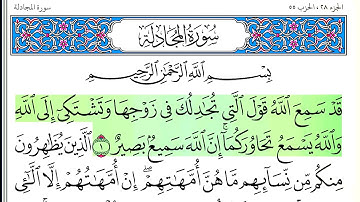 الجزء ٢٨، الحزب ٥٥ سورة المجادلة
سُورَةُ المُجَادلَةِ
بِسْمِ اللَّهِ الرَّحْمَٰنِ الرَّحِيمِ
قَدْ سَمِعَ اللَّهُ قَوْلَ الَّتِي تُجَادِلُكَ فِي زَوْجِهَا وَتَشْتَكِي إِلَى اللَّهِ
وَاللَّهُ يَسْمَعُ تَحَاوُرَكُمَا إِنَّ اللَّهَ سَمِيعٌ بَصِيرٌ ١ الَّذِينَ يُظَاهِرُونَ
مِنكُم مِّن نِّسَائِهِم مَّا هُنَّ أُمَّهَاتِهِمْ إِنْ أُمَّهَاتُهُمْ إِلَّا اللَّائِي